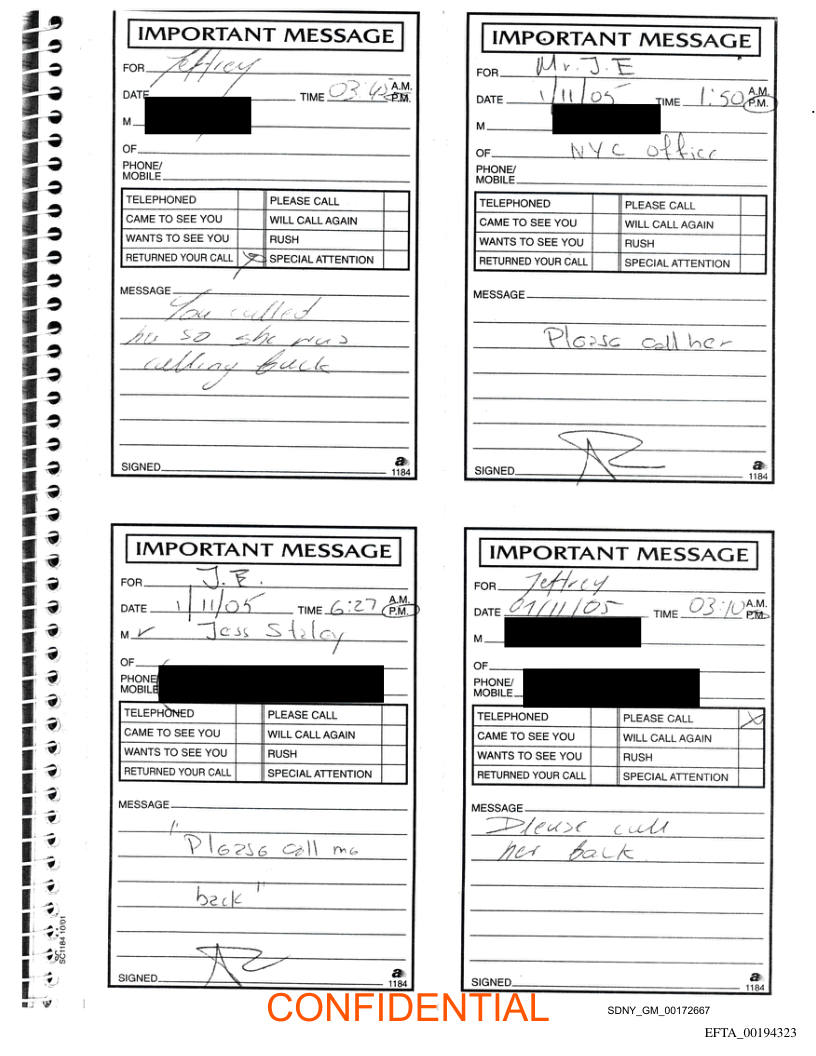 IMPORTANT MESSAGE
FOR Jeffrey
DATE TIME 03:42 A.M.
P.M.
M
OF
PHONE/
MOBILE
TELEPHONED PLEASE CALL
CAME TO SEE YOU WILL CALL AGAIN
WANTS TO SEE YOU RUSH
RETURNED YOUR CALL X SPECIAL ATTENTION
MESSAGE
You called
her so she was
calling back
SIGNED
a
1184
IMPORTANT MESSAGE
FOR Mr. J.E
DATE 1/11/05 TIME 1:50 A.M.
P.M.
M
OF NYC office
PHONE/
MOBILE
TELEPHONED PLEASE CALL
CAME TO SEE YOU WILL CALL AGAIN
WANTS TO SEE YOU RUSH
RETURNED YOUR CALL SPECIAL ATTENTION
MESSAGE
Please call her
SIGNED
a
1184
IMPORTANT MESSAGE
FOR J.E.
DATE 1/11/05 TIME 6:27 A.M.
P.M.
M ✓ Jess Staley
OF
PHONE/
MOBILE
TELEPHONED PLEASE CALL
CAME TO SEE YOU WILL CALL AGAIN
WANTS TO SEE YOU RUSH
RETURNED YOUR CALL SPECIAL ATTENTION
MESSAGE
"Please call me
back"
SIGNED
a
1184
IMPORTANT MESSAGE
FOR Jeffrey
DATE 01/11/05 TIME 03:10 A.M.
P.M.
M
OF
PHONE/
MOBILE
TELEPHONED PLEASE CALL X
CAME TO SEE YOU WILL CALL AGAIN
WANTS TO SEE YOU RUSH
RETURNED YOUR CALL SPECIAL ATTENTION
MESSAGE
Please call
her back
SIGNED
a
1184
SC1184 10/01
CONFIDENTIAL
SDNY_GM_00172667
EFTA_00194323